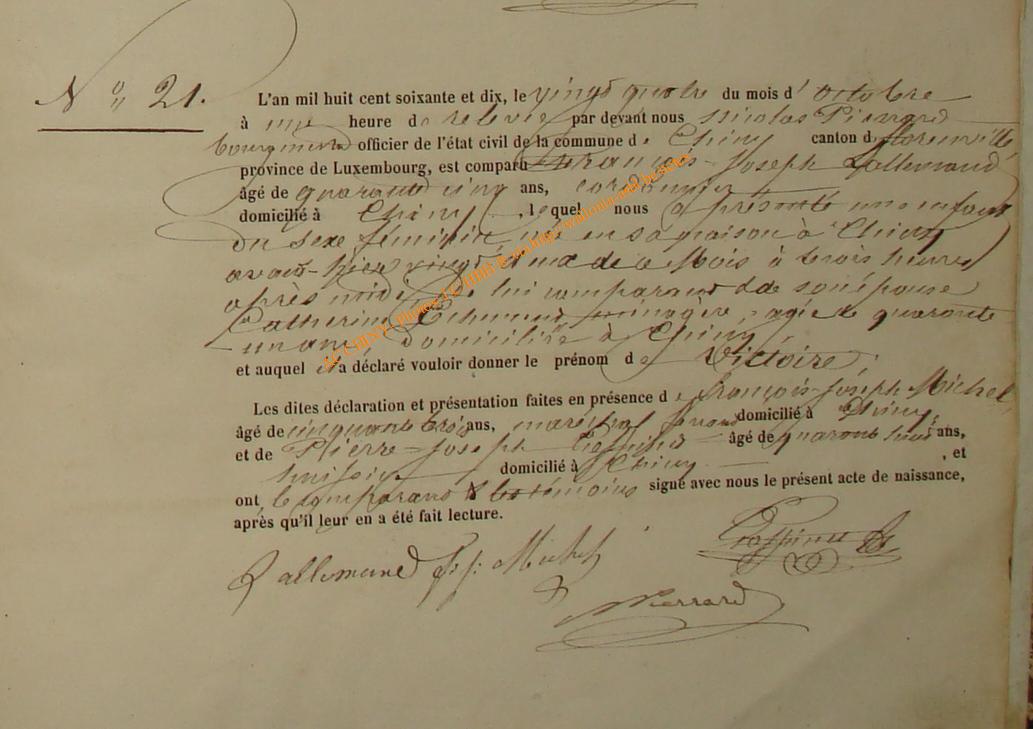 N° 21.
L'an mil huit cent soixante et dix, le vingt quatre du mois d' Octobre
à une heure de relevée par devant nous Nicolas Pierrard
bourgmestre officier de l'état civil de la commune de Chiny canton de florenville
province de Luxembourg, est comparu François-Joseph Lallemand
âgé de quarante cinq ans, cordonnier
domicilié à Chiny, lequel nous a présenté un enfant
du sexe féminin, né en sa maison à Chiny
avant-hier vingt deux de ce Mois à trois heures
après midi de lui comparant et de son épouse
Catherine ménagère, agée de quarante
un ans, domiciliée à Chiny
et auquel il a déclaré vouloir donner le prénom de Victoire.
Les dites déclaration et présentation faites en présence de françois-Joseph Michel
âgé de cinquante trois ans, maréchal ferrant domicilié à Chiny,
et de Pierre-Joseph âgé de quarante ans,
huissier domicilié à Chiny, et
ont, le comparant & les témoins signé avec nous le présent acte de naissance,
après qu'il leur en a été fait lecture.
Lallemand f. j. Michel
Pierrard